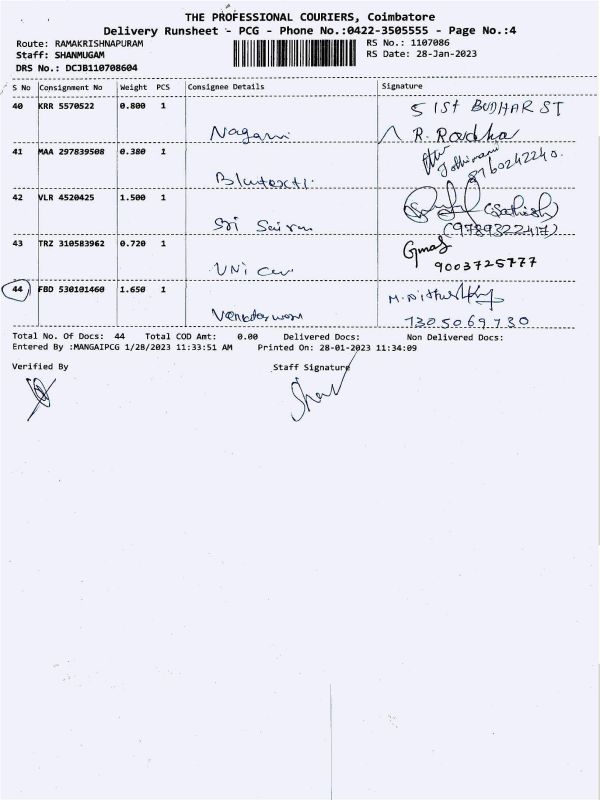 THE PROFESSIONAL COURIERS, Coimbatore
Delivery Runsheet - PCG - Phone No.:0422-3505555 - Page No.:4
Route: RAMAKRISHNAPURAM RS No.: 1107086
Staff: SHANMUGAM RS Date: 28-Jan-2023
DRS No.: DCJB110708604
S No Consignment No Weight PCS Consignee Details Signature
40 KRR 5570522 0.800 1 5 1st BUDHAR ST
Nagami R. Radha
41 MAA 297839508 0.380 1 Jothimani
42 VLR 4520425 1.500 1 (Sathish)
Sri Sairam (9789322417)
43 TRZ 310583962 0.720 1
UNi Car 9003725777
44 FBD 530101460 1.650 1
7305069730
Total No. Of Docs: 44 Total COD Amt: 0.00 Delivered Docs: Non Delivered Docs:
Entered By :MANGAIPCG 1/28/2023 11:33:51 AM Printed On: 28-01-2023 11:34:09
Verified By Staff Signature